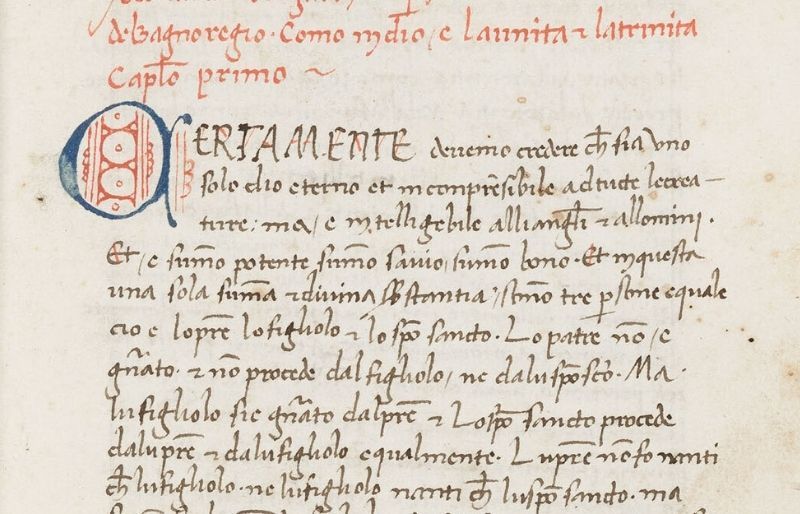 de bagnoregio. Como in dio / e la unita et la trinita
Caplo primo ~
CERTAMENTE devemo credere ch sia uno
solo dio eterno et incomprēsibile ad tucte le crea-
ture: ma / e intelligebile alli angli et allomini.
Et / e summo potente summo savio / summo bono. Et in questa
una sola summa et divina substantia / sonno tre persone equale
cio e lo prē lo figliolo et lo spō sancto. Lo patre nō / e
gnāto. et nō procede dal figliolo / ne da lu spō scō. Ma.
lu figliolo sie gnāto dal prē et Lo spō sancto procede
da lu prē et da lu figliolo equalmente. Lu prē nō fo nanti
ch lu figliolo. ne lu figliolo nanti ch lu spō sancto. ma